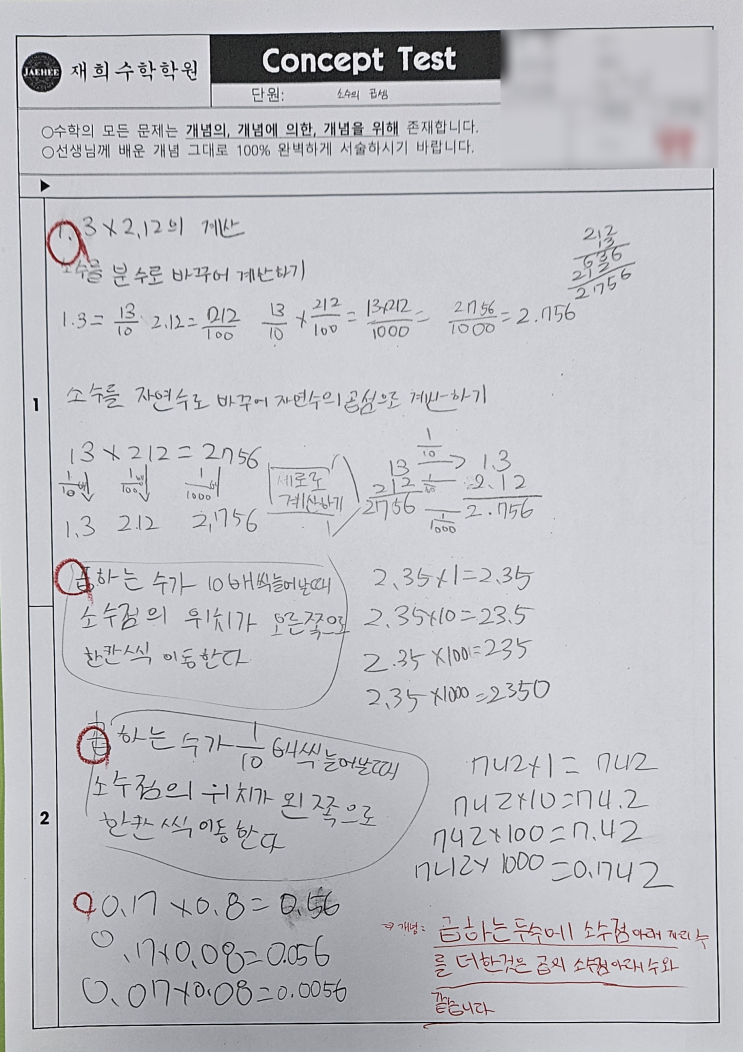 JAEHEE 재희수학학원
Concept Test
단원: 소수의 곱셈
○수학의 모든 문제는 개념의, 개념에 의한, 개념을 위해 존재합니다.
○선생님께 배운 개념 그대로 100% 완벽하게 서술하시기 바랍니다.
▶
1
1.3×2.12의 계산
212
13
636
212
2756
소수를 분수로 바꾸어 계산하기
1.3 = 13/10 2.12 = 212/100 13/10 × 212/100 = 13×212/1000 = 2756/1000 = 2.756
소수를 자연수로 바꾸어 자연수의 곱셈으로 계산하기
13 × 212 = 2756
1/10배↓ 1/100배↓ 1/1000배↓
1.3 2.12 2.756
세로로
계산하기
13 1/10→ 1.3
212 1/100 2.12
2756 1/1000 2.756
곱하는 수가 10배씩늘어날때
소수점의 위치가 오른쪽으로
한칸씩 이동한다
2.35×1=2.35
2.35×10=23.5
2.35×100=235
2.35×1000=2350
2
곱하는 수가 1/10 배씩늘어날때
소수점의 위치가 왼쪽으로
한칸씩이동한다
742×1= 742
742×10=74.2
742×100=7.42
742×1000=0.742
0.17×0.8=0.56
0.17×0.08=0.056
0.017×0.08=0.0056
⇒개념: 곱하는두수에 소수점아래 자리 수
를 더한것은 곱의 소수점아래수와
같습니다